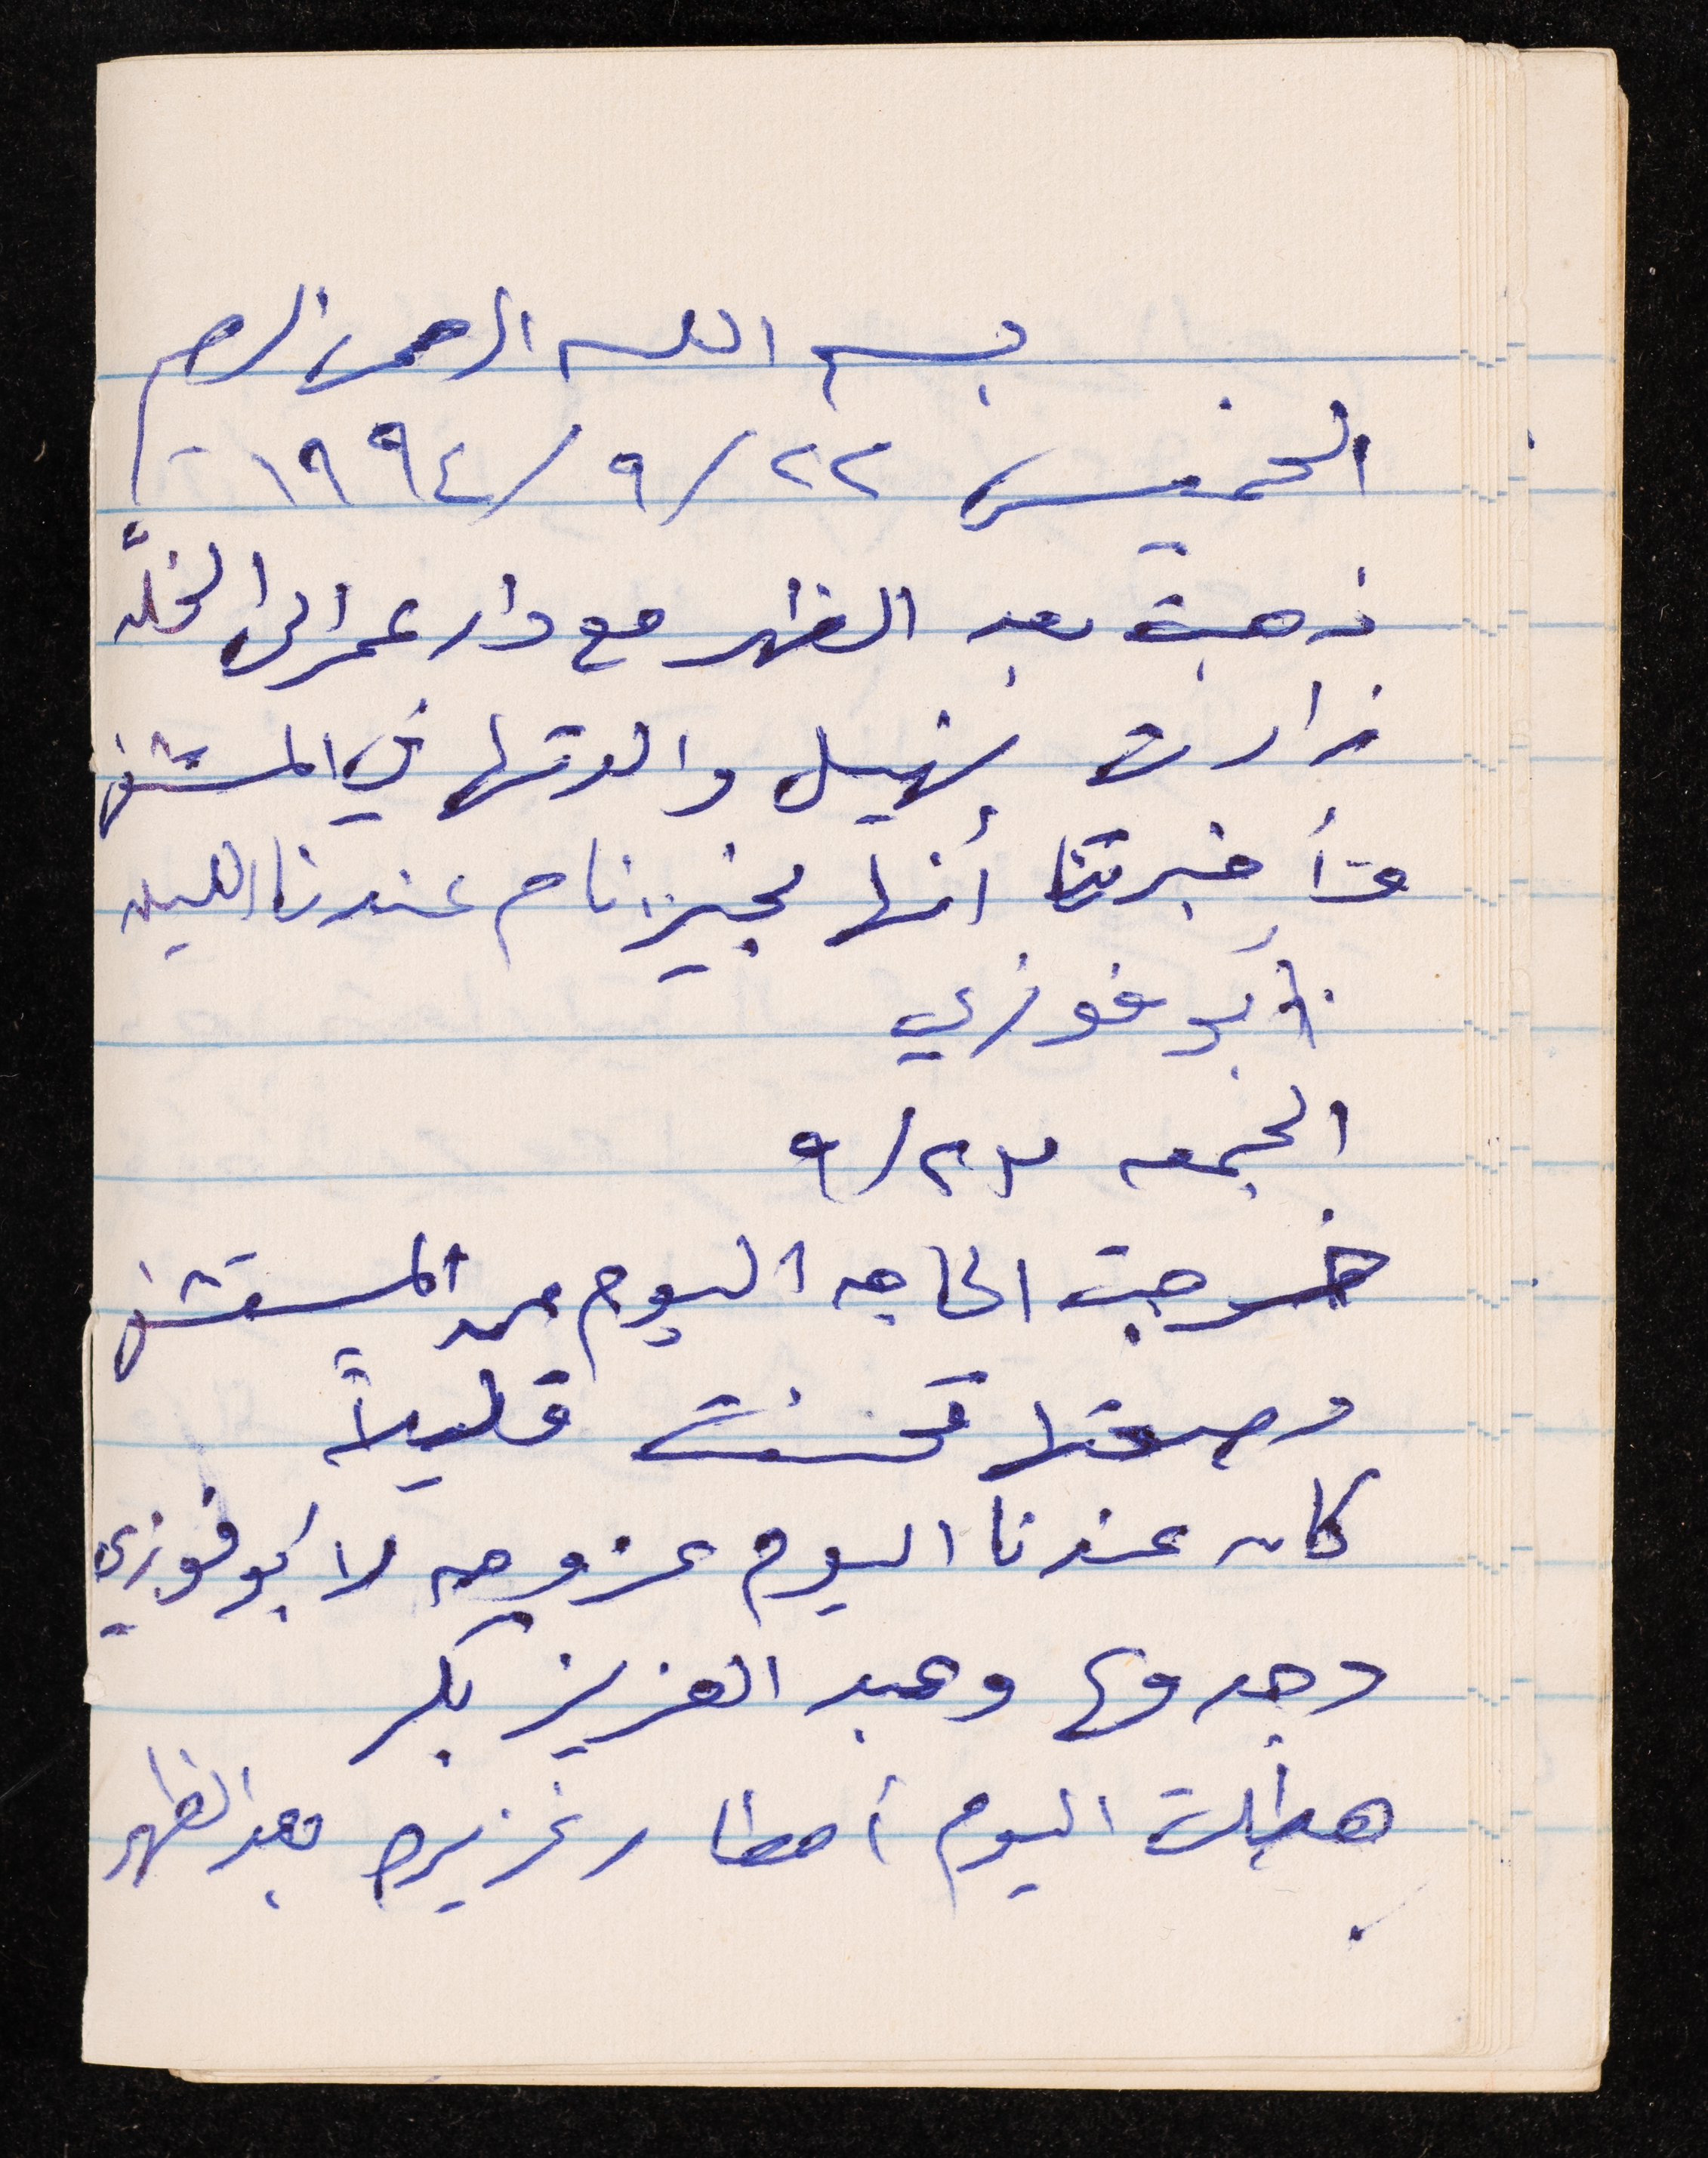 بسم الله الرحمن الرحيم
الخميس ٢٢/٩/١٩٩٤
ذهبت بعد الظهر مع دار عمر الى الخلّه
زارت نهيل والدتها في المستشفى
وأخبرتنا أنها بخير. نام عندنا الليله
أبو فوزي
الجمعه ٢٣/٩
خرجت الحاجه اليوم من المستشفى
وصحتها تحسنت قليلاً
كان عندنا اليوم عزومه لابو فوزي
وجدوع وعبد العزيز بكر
هطلت اليوم أمطار غزيره بعد الظهر